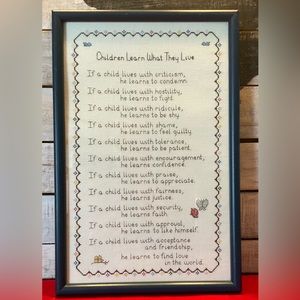 Children Learn What They Live
If a child lives with criticism,
he learns to condemn.
If a child lives with hostility,
he learns to fight.
If a child lives with ridicule,
he learns to be shy.
If a child lives with shame,
he learns to feel guilty.
If a child lives with tolerance,
he learns to be patient.
If a child lives with encouragement,
he learns confidence.
If a child lives with praise,
he learns to appreciate.
If a child lives with fairness,
he learns justice.
If a child lives with security,
he learns faith.
If a child lives with approval,
he learns to like himself.
If a child lives with acceptance
and friendship,
he learns to find love
in the world.